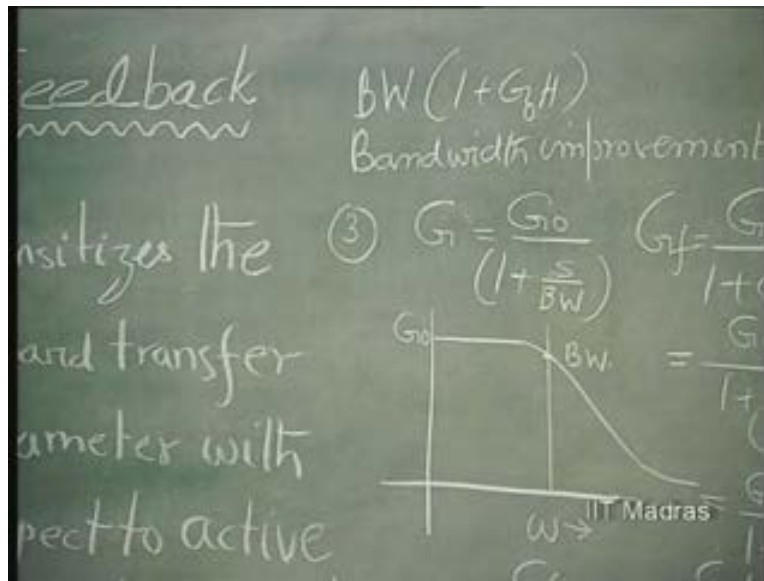 eedback
nsitizes the
ard transfer
ameter with
pect to active
BW (1+G₀H)
Bandwidth improvement
③ G = G₀ / (1 + s/BW)
Gf = G / 1+
= G / 1+
G₀
BW.
ω→
IIT Madras